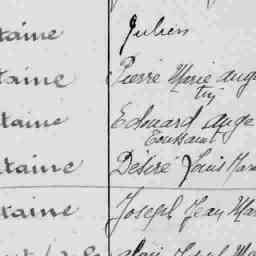 taine Julien
taine Pierre Marie Augu
tin
taine Edouard Ange
Toussaint
taine Désiré Louis Mar
taine Joseph Jean Mar